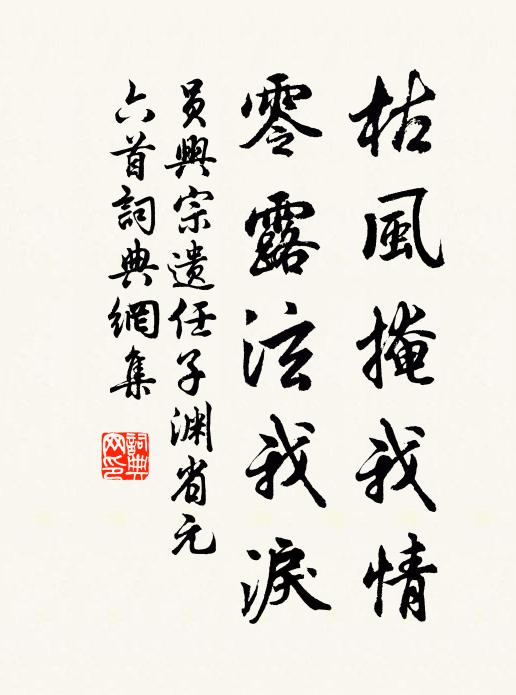 枯風掩我情
零露泫我淚
員興宗遺任子渊省元
六首詞典網集
詞典网印